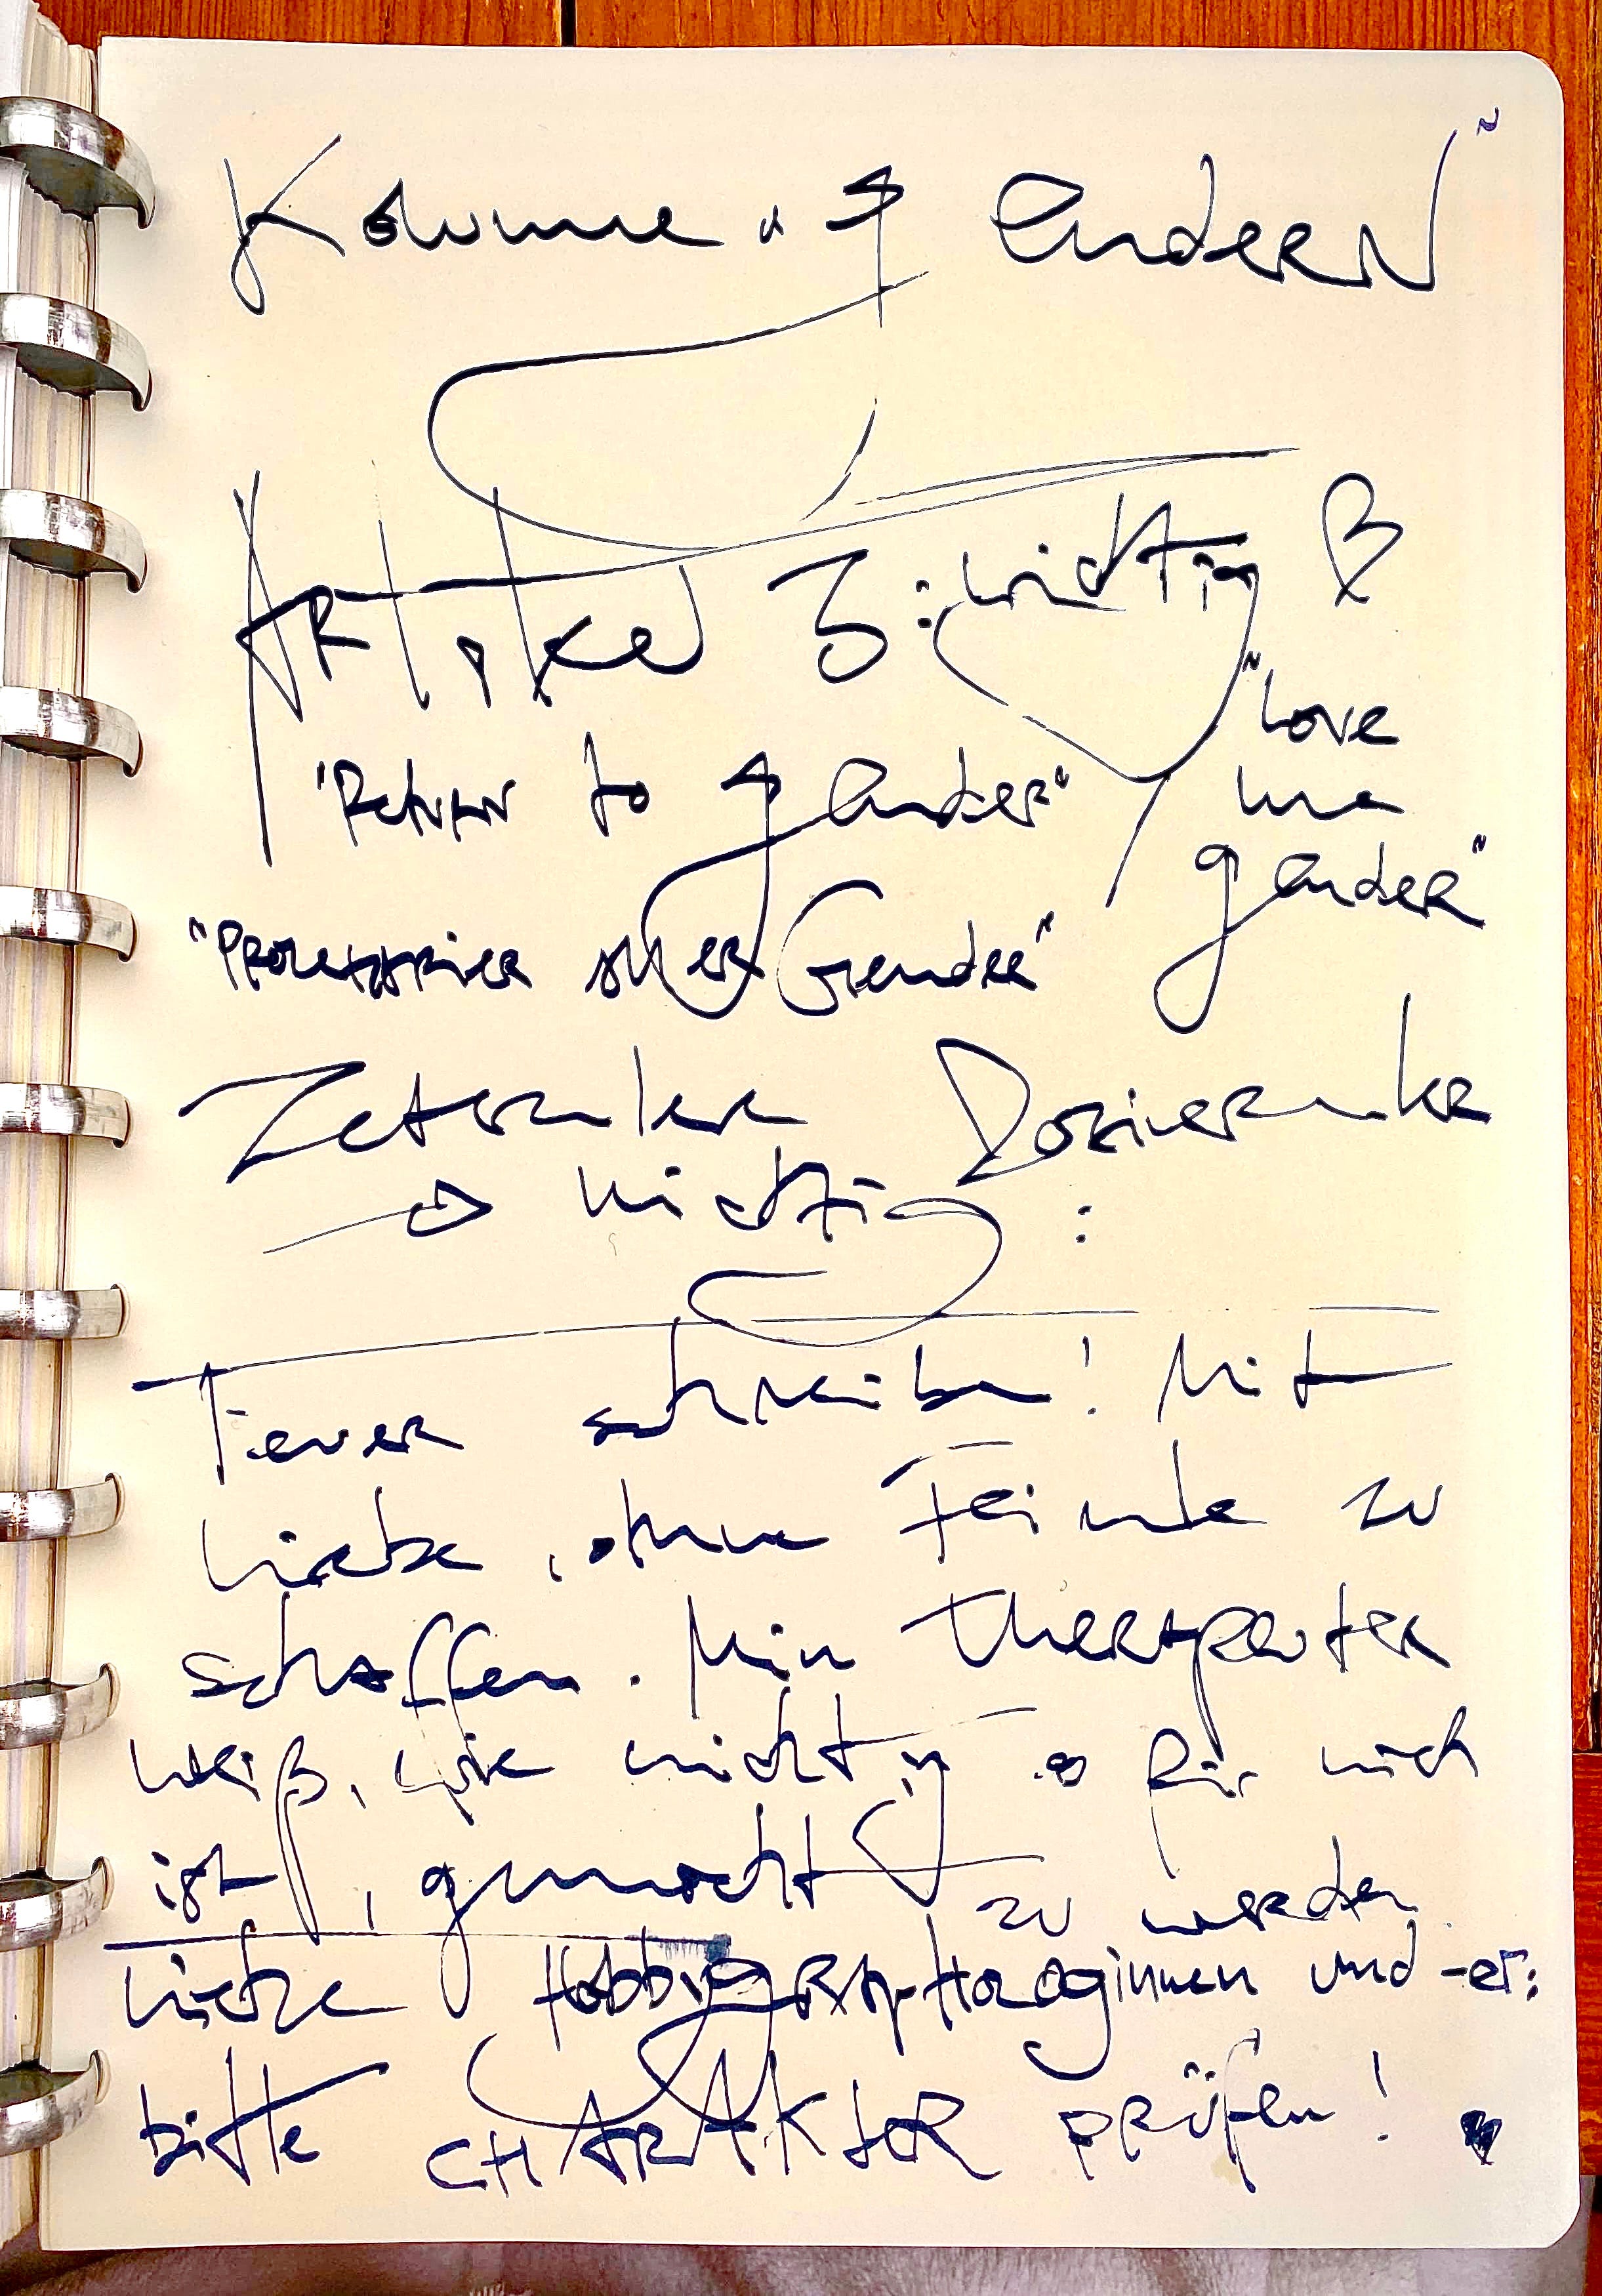 Kolumne "gendern"
Artikel 3: wichtig
"Return to gender"
"Love
me
gender"
"Proletarier aller Gender"
→ wichtig:
Feuer schreiben! Mit
Liebe, ohne Feinde zu
schaffen. Mein Therapeuten
weiß, wie wichtig es für mich
ist, gemocht zu werden
Liebe Hobbygraphologinnen und -er:
bitte CHARAKTER prüfen!